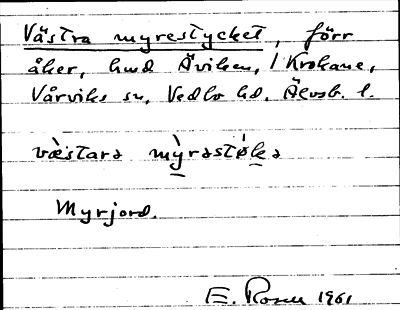 Västra myrestycket, förr
åker, hmd Äviken, i Krokane,
Vårviks sn, Vedbo hd, Älvsb. l.
væ̀stara mỳrastø̀ka
Myrjord.
E. Rosen 1961